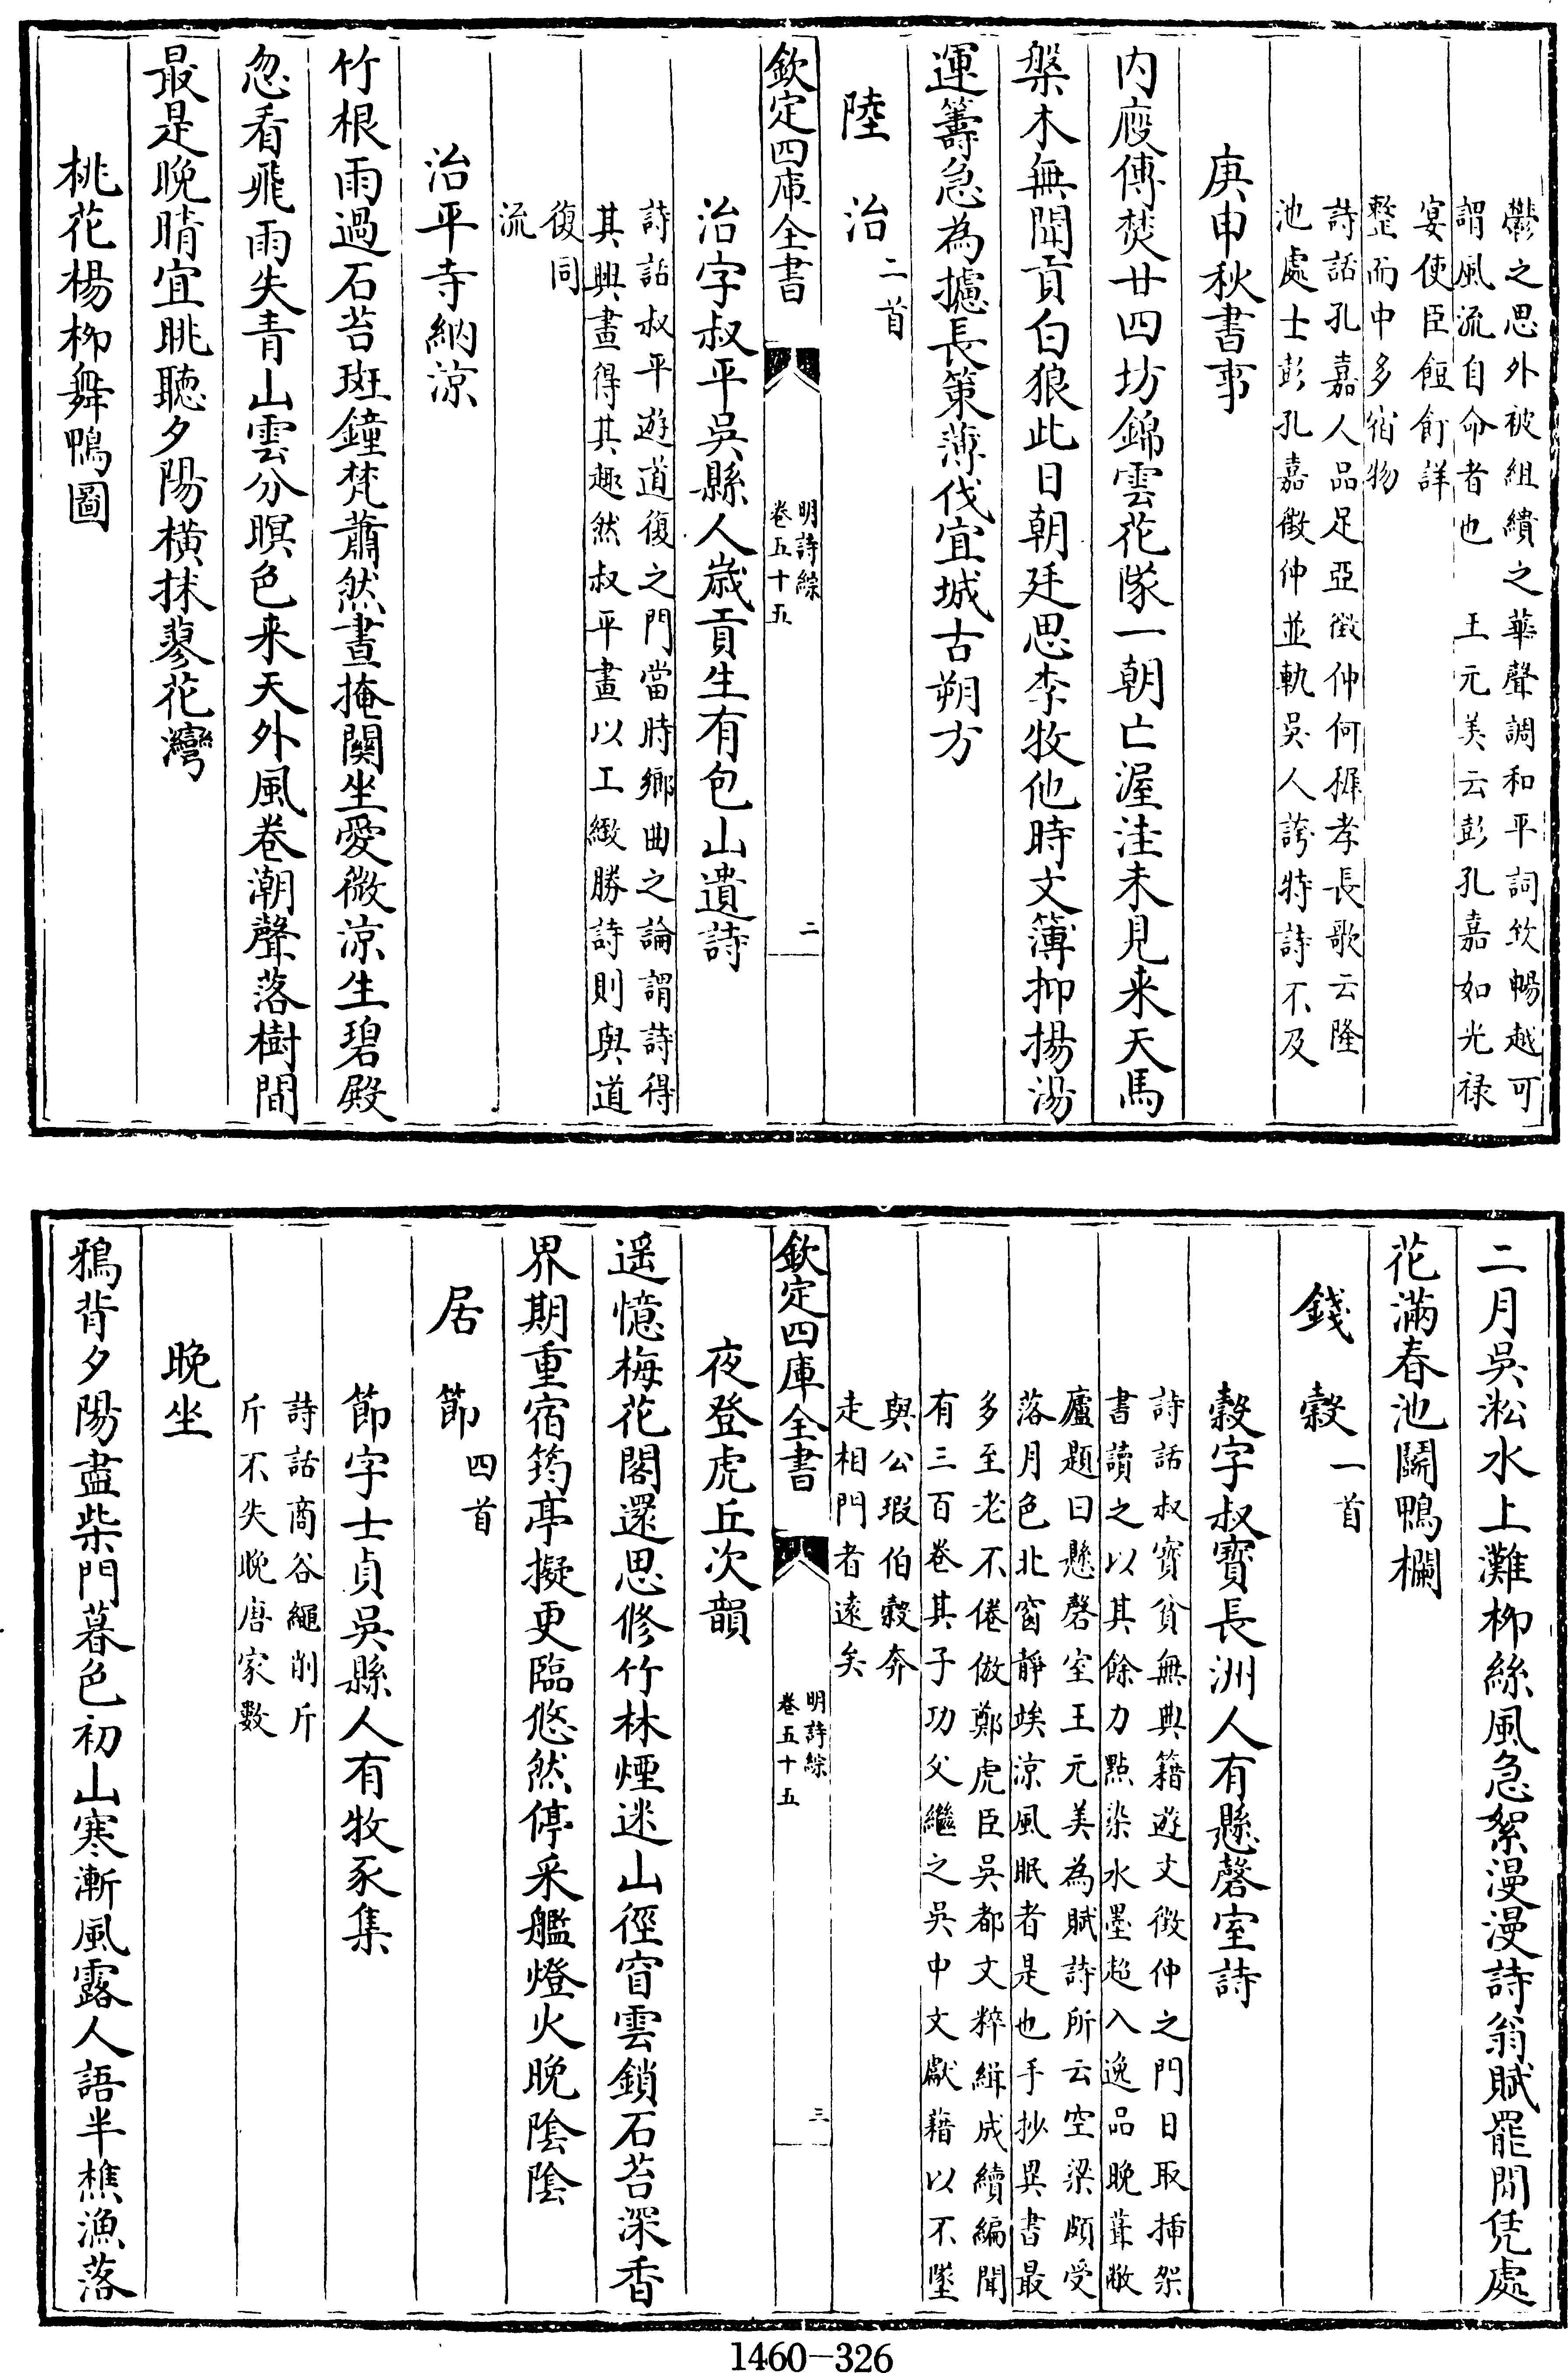 鬱之思外被組繢之華聲調和平詞欵暢越可
謂風流自命者也　王元美云彭孔嘉如光禄
宴使臣餖飣詳
整而中多宿物
詩話孔嘉人品足亞徵仲何穉孝長歌云隆
池處士彭孔嘉徵仲並軌吳人誇特詩不及
庚申秋書事
内廄傳焚廿四坊錦雲花隊一朝亡渥洼未見来天馬
槃木無聞貢白狼此日朝廷思李牧他時文簿抑揚湯
運籌急為攄長策薄伐宜城古朔方
陸　治二首
欽定四庫全書
明詩綜
卷五十五
二
治字叔平吳縣人歳貢生有包山遺詩
詩話叔平遊道復之門當時鄉曲之論謂詩得
其興畫得其趣然叔平畫以工緻勝詩則與道
復同
流
治平寺納涼
竹根雨過石苔斑鐘梵蕭然晝掩關坐愛微涼生碧殿
忽看飛雨失青山雲分暝色来天外風卷潮聲落樹間
最是晚晴宜眺聽夕陽橫抹蓼花灣
桃花楊柳舞鴨圖
二月吳淞水上灘柳絲風急絮漫漫詩翁賦罷閒凭處
花滿春池鬭鴨欄
錢　榖一首
榖字叔寳長洲人有懸磬室詩
詩話叔寳貧無典籍遊文徵仲之門日取揷架
書讀之以其餘力點染水墨超入逸品晚葺敝
廬題曰懸磬室王元美為賦詩所云空梁頗受
落月色北窗靜埃涼風眠者是也手抄異書最
多至老不倦倣鄭虎臣吳都文粹緝成續編聞
有三百卷其子功父繼之吳中文獻藉以不墜
與公瑕伯榖奔
走相門者逺矣
欽定四庫全書
明詩綜
卷五十五
三
夜登虎丘次韻
遥憶梅花閣還思修竹林煙迷山徑窅雲鎖石苔深香
界期重宿筠亭擬更臨悠然停采艦燈火晚陰陰
居　節四首
節字士貞吳縣人有牧豕集
詩話商谷繩削斤
斤不失晚唐家數
晚坐
鴉背夕陽盡柴門暮色初山寒漸風露人語半樵漁落
1460-326